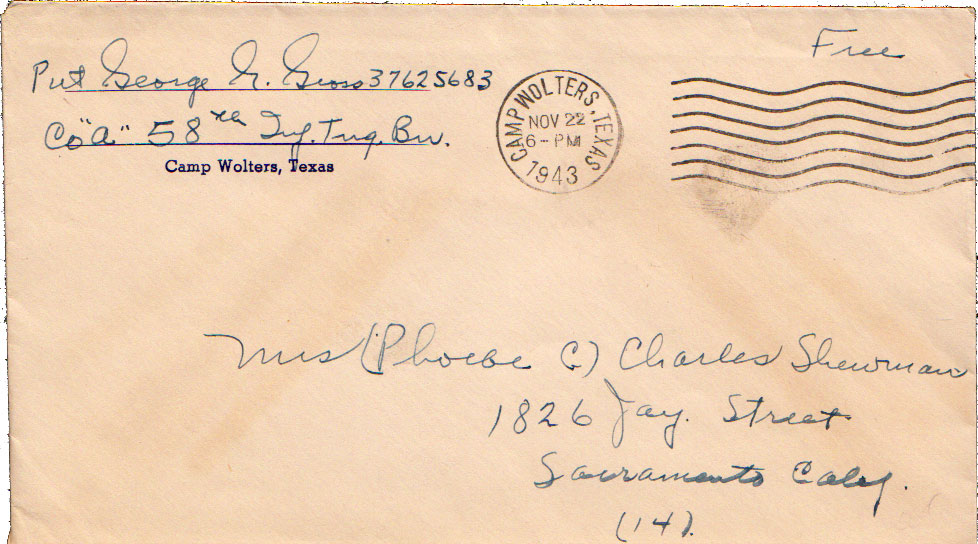 Free
Pvt George N. Gross 37625683
Co "A" 58th Inf. Trng. Bn.
Camp Wolters, Texas
CAMP WOLTERS, TEXAS
NOV 22
6 - PM
1943
Mrs (Phoebe C) Charles Shewman
1826 Jay. Street
Sacramento Calif.
(14).